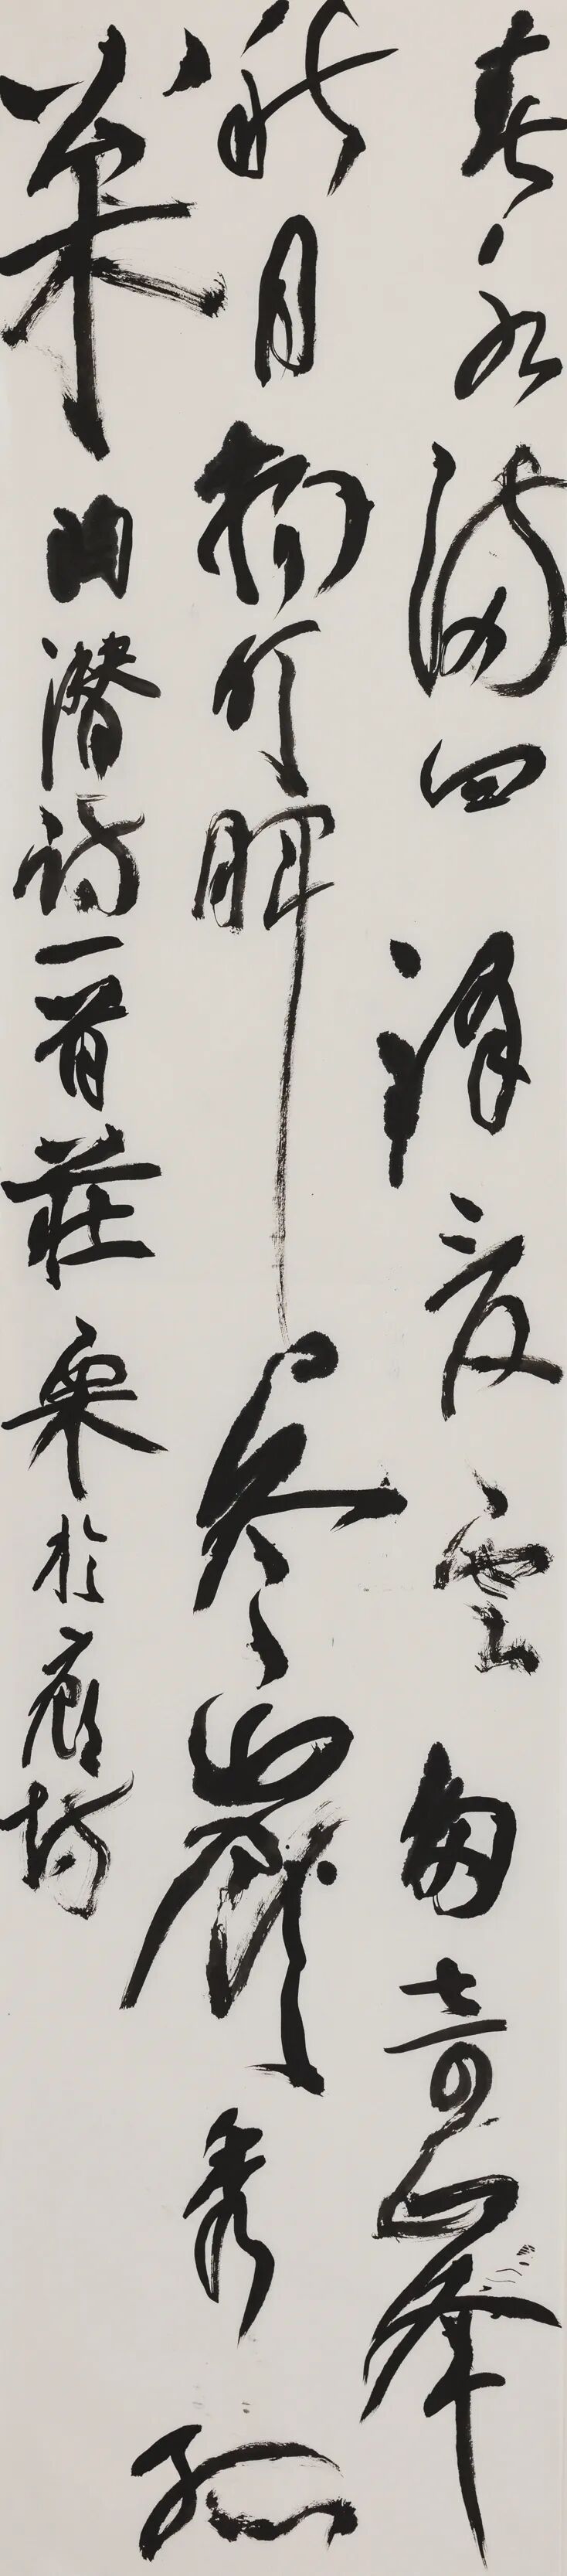 春水滿四澤夏雲多奇峰
秋月揚明暉冬嶺秀孤
松陶潛詩一首莊栗於廊坊